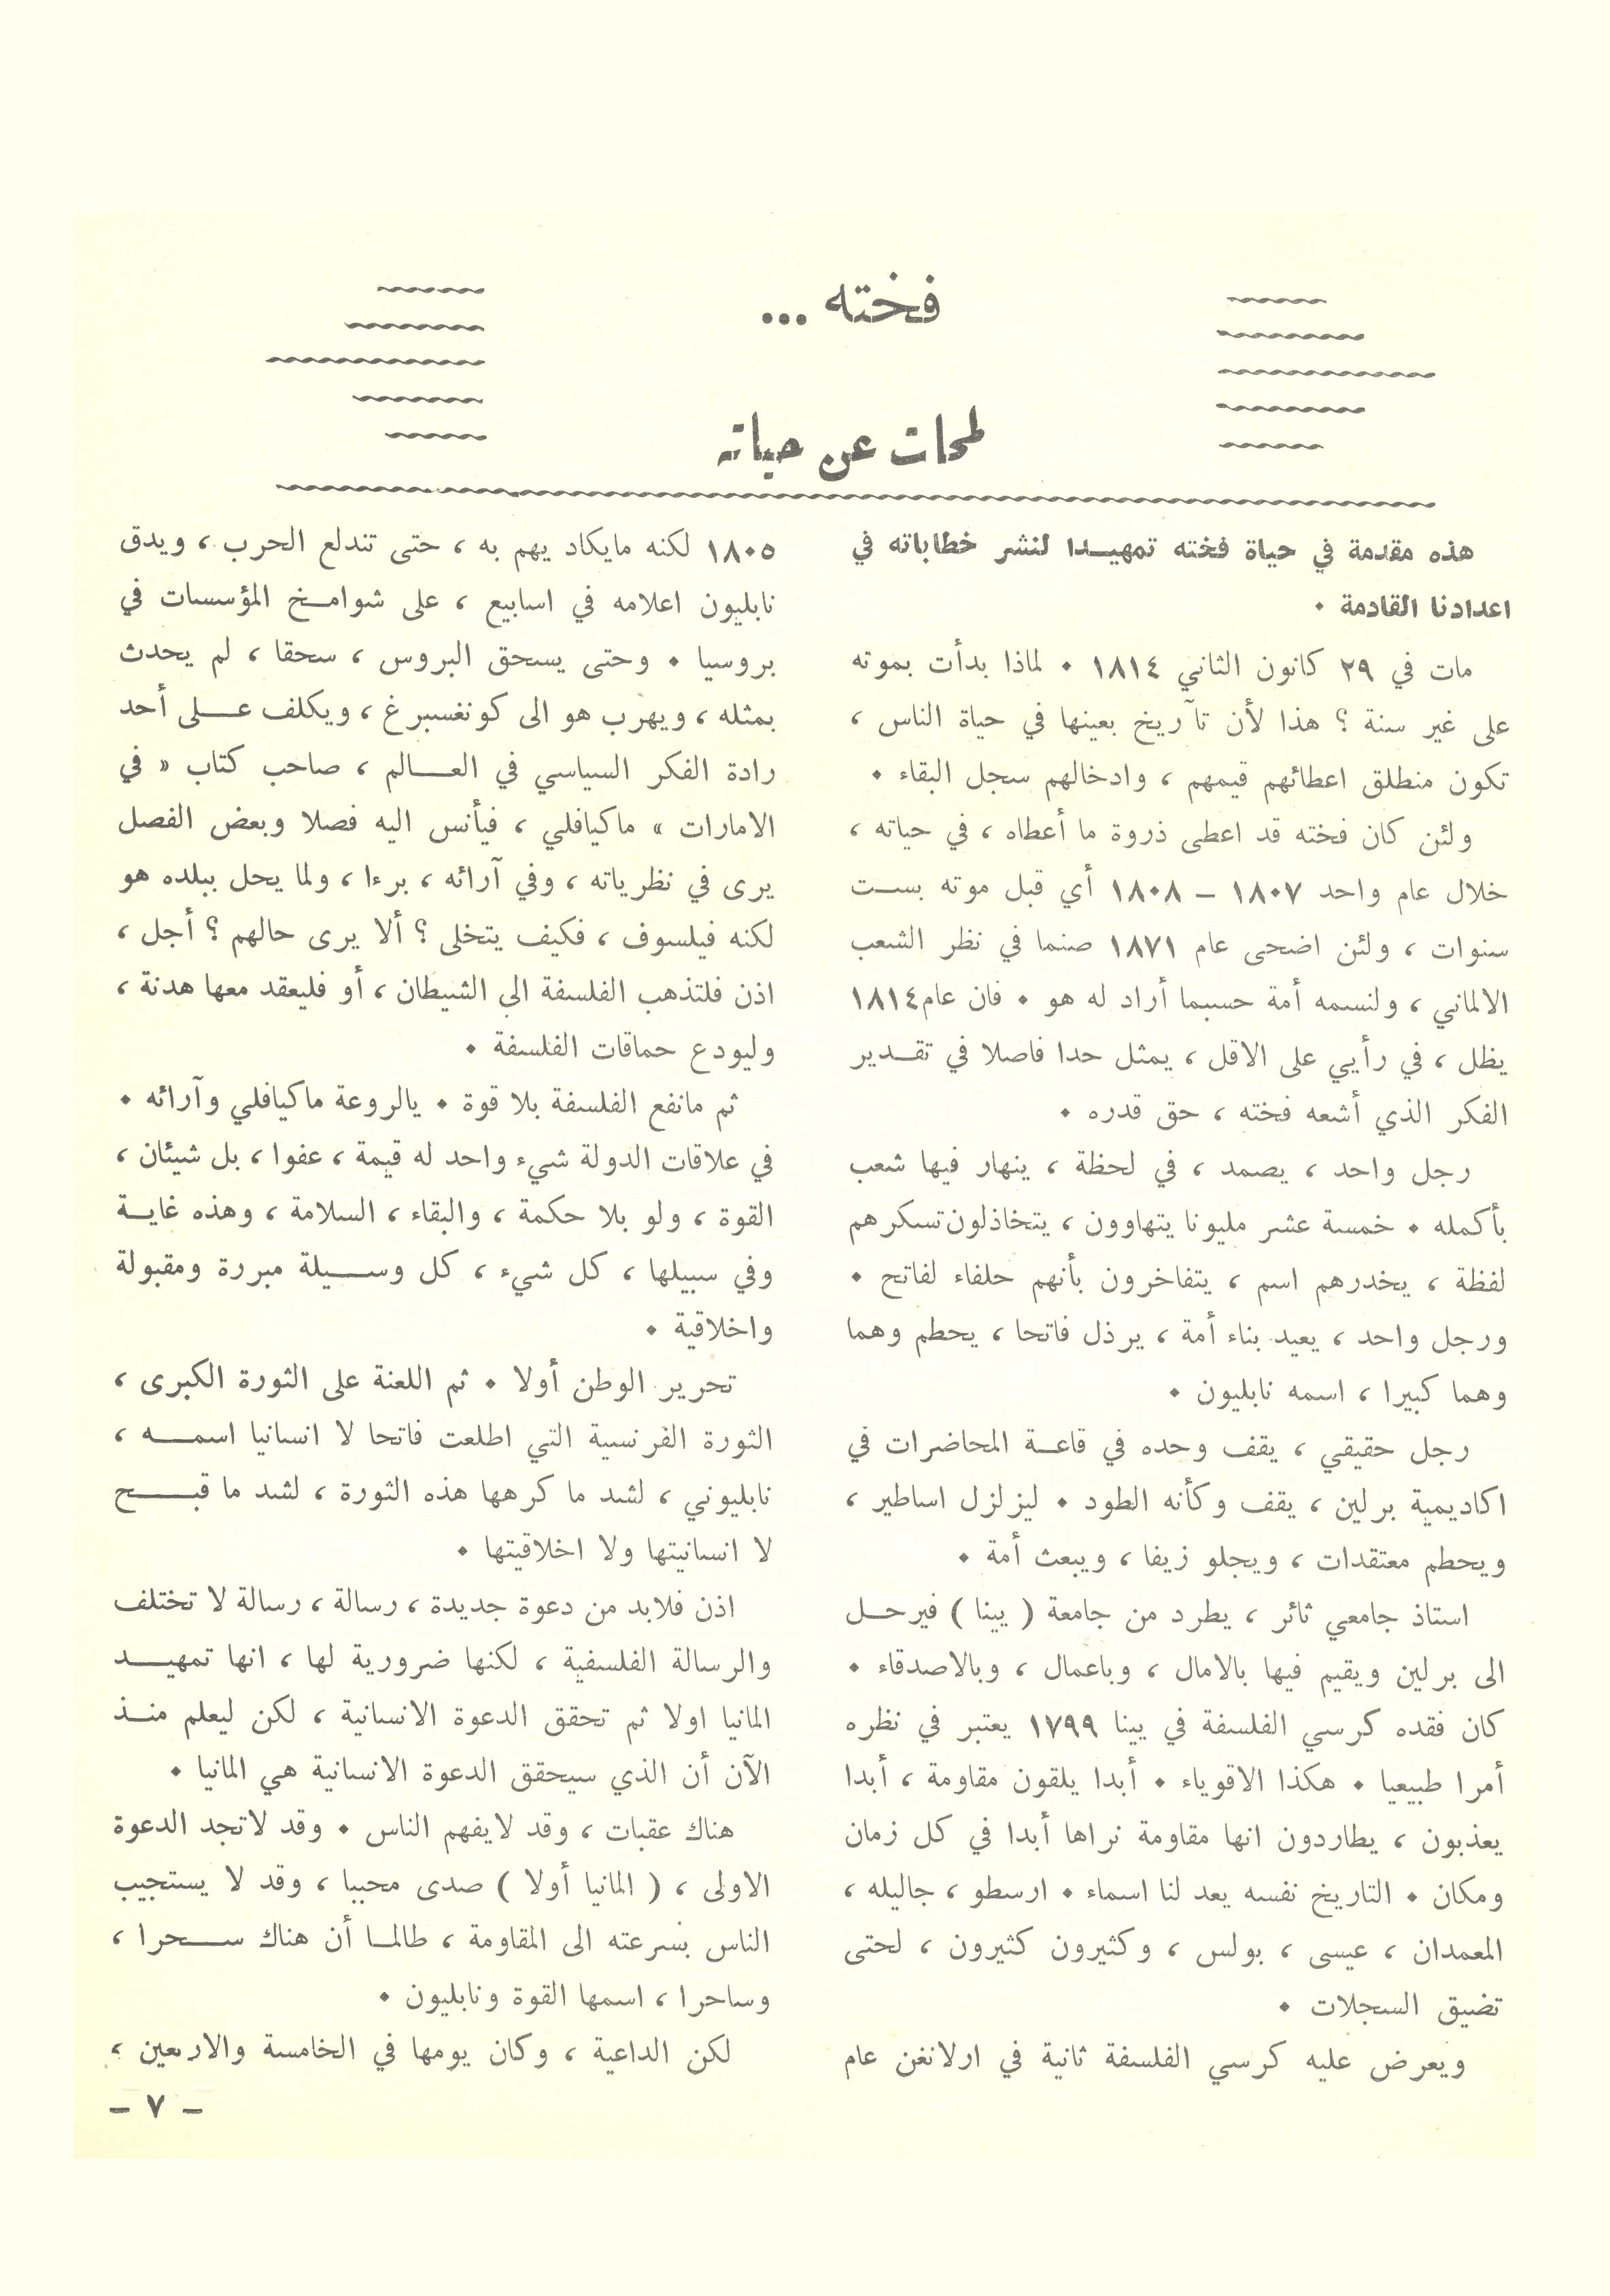 فخته ...
لمحات عن حياته
هذه مقدمة في حياة فخته تمهيدا لنشر خطاباته في
اعدادنا القادمة ٠
مات في ٢٩ كانون الثاني ١٨١٤ ٠ لماذا بدأت بموته
على غير سنة ؟ هذا لأن تآريخ بعينها في حياة الناس ،
تكون منطلق اعطائهم قيمهم ، وادخالهم سجل البقاء ٠
ولئن كان فخته قد اعطى ذروة ما أعطاه ، في حياته ،
خلال عام واحد ١٨٠٧ – ١٨٠٨ أي قبل موته بست
سنوات ، ولئن اضحى عام ١٨٧١ صنما في نظر الشعب
الالماني ، ولنسمه أمة حسبما أراد له هو ٠ فان عام ١٨١٤
يظل ، في رأيي على الاقل ، يمثل حدا فاصلا في تقدير
الفكر الذي أشعه فخته ، حق قدره ٠
رجل واحد ، يصمد ، في لحظة ، ينهار فيها شعب
بأكمله ٠ خمسة عشر مليونا يتهاوون ، يتخاذلون تسكرهم
لفظة ، يخدرهم اسم ، يتفاخرون بأنهم حلفاء لفاتح ٠
ورجل واحد ، يعيد بناء أمة ، يرذل فاتحا ، يحطم وهما
وهما كبيرا ، اسمه نابليون ٠
رجل حقيقي ، يقف وحده في قاعة المحاضرات في
اكاديمية برلين ، يقف وكأنه الطود ٠ ليزلزل اساطير ،
ويحطم معتقدات ، ويجلو زيفا ، ويبعث أمة ٠
استاذ جامعي ثائر ، يطرد من جامعة ( يينا ) فيرحل
الى برلين ويقيم فيها بالامال ، وباعمال ، وبالاصدقاء ٠
كان فقده كرسي الفلسفة في يينا ١٧٩٩ يعتبر في نظره
أمرا طبيعيا ٠ هكذا الاقوياء ٠ أبدا يلقون مقاومة ، أبدا
يعذبون ، يطاردون انها مقاومة نراها أبدا في كل زمان
ومكان ٠ التاريخ نفسه يعد لنا اسماء ٠ ارسطو ، جاليله ،
المعمدان ، عيسى ، بولس ، وكثيرون كثيرون ، لحتى
تضيق السجلات ٠
ويعرض عليه كرسي الفلسفة ثانية في ارلانغن عام
١٨٠٥ لكنه مايكاد يهم به ، حتى تندلع الحرب ، ويدق
نابليون اعلامه في اسابيع ، على شوامخ المؤسسات في
بروسيا ٠ وحتى يسحق البروس ، سحقا ، لم يحدث
بمثله ، ويهرب هو الى كونغسبرغ ، ويكلف على أحد
رادة الفكر السياسي في العالم ، صاحب كتاب « في
الامارات » ماكيافلي ، فيأنس اليه فصلا وبعض الفصل
يرى في نظرياته ، وفي آرائه ، برءا ، ولما يحل ببلده هو
لكنه فيلسوف ، فكيف يتخلى ؟ ألا يرى حالهم ؟ أجل ،
اذن فلتذهب الفلسفة الى الشيطان ، أو فليعقد معها هدنة ،
وليودع حماقات الفلسفة ٠
ثم مانفع الفلسفة بلا قوة ٠ يالروعة ماكيافلي وآرائه ٠
في علاقات الدولة شيء واحد له قيمة ، عفوا ، بل شيئان ،
القوة ، ولو بلا حكمة ، والبقاء ، السلامة ، وهذه غاية
وفي سبيلها ، كل شيء ، كل وسيلة مبررة ومقبولة
واخلاقية ٠
تحرير الوطن أولا ٠ ثم اللعنة على الثورة الكبرى ،
الثورة الفرنسية التي اطلعت فاتحا لا انسانيا اسمه ،
نابليوني ، لشد ما كرهها هذه الثورة ، لشد ما قبح
لا انسانيتها ولا اخلاقيتها ٠
اذن فلابد من دعوة جديدة ، رسالة ، رسالة لا تختلف
والرسالة الفلسفية ، لكنها ضرورية لها ، انها تمهيد
المانيا اولا ثم تحقق الدعوة الانسانية ، لكن ليعلم منذ
الآن أن الذي سيحقق الدعوة الانسانية هي المانيا ٠
هناك عقبات ، وقد لايفهم الناس ٠ وقد لاتجد الدعوة
الاولى ، ( المانيا أولا ) صدى محببا ، وقد لا يستجيب
الناس بسرعته الى المقاومة ، طالما أن هناك سحرا ،
وساحرا ، اسمها القوة ونابليون ٠
لكن الداعية ، وكان يومها في الخامسة والاربعين ،
– ٧ –